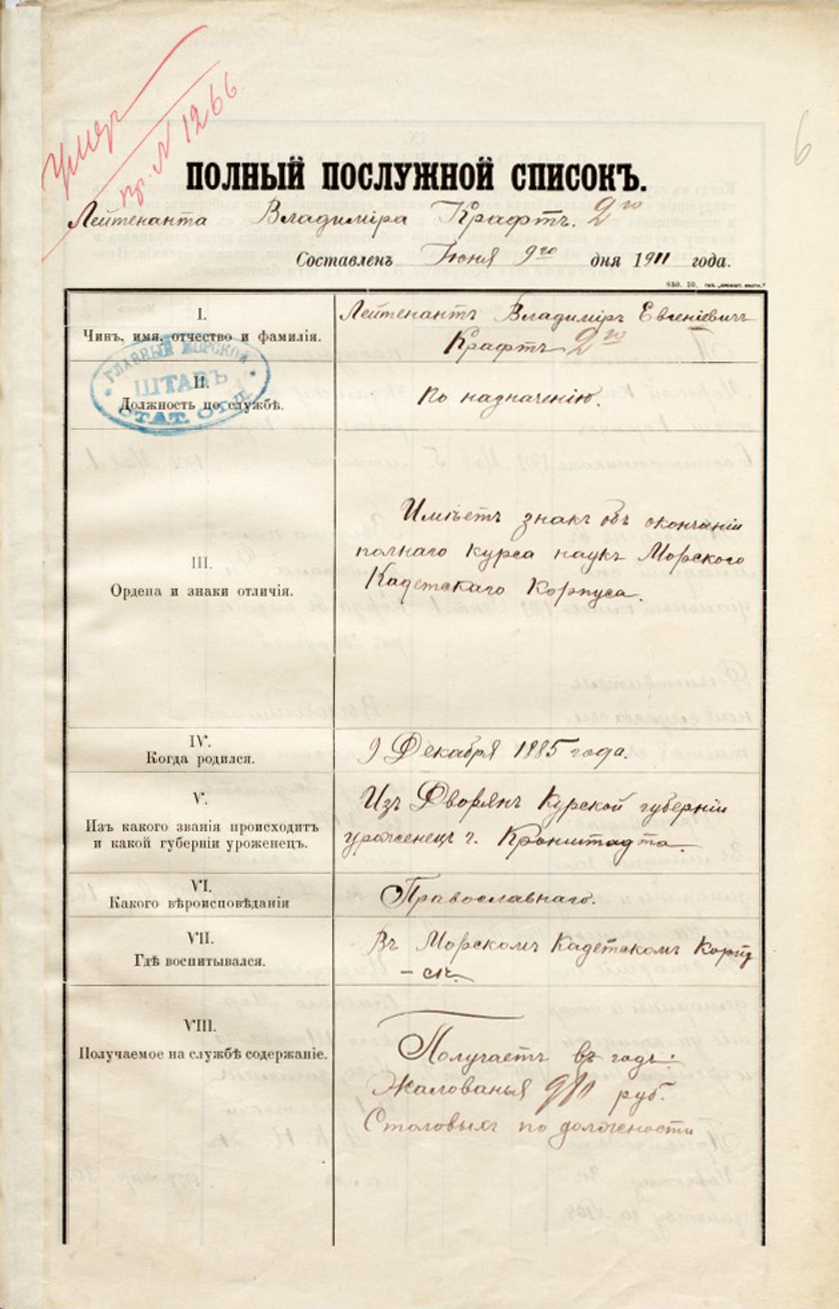 умер
пр. N 1266
6
ПОЛНЫЙ ПОСЛУЖНОЙ СПИСОКЪ.
Лейтенанта Владиміра Крафтъ. 2го
Составленъ Іюня 9го дня 1911 года.
I.
Чинъ, имя, отчество и фамилія.
Лейтенантъ Владиміръ Евгеніевичъ
Крафтъ 2го
ГЛАВНЫЙ МОРСКОЙ
ШТАБЪ
СТАТ. ОТД.
II.
Должность по службѣ.
По назначенію.
III.
Ордена и знаки отличія.
Имѣетъ знакъ объ окончаніи
полнаго курса наукъ Морского
Кадетскаго Корпуса.
IV.
Когда родился.
9 Декабря 1885 года.
V.
Изъ какого званія происходитъ
и какой губерніи уроженецъ.
Изъ Дворянъ Курской губерніи
уроженецъ г. Кронштадта.
VI.
Какого вѣроисповѣданія
Православнаго.
VII.
Гдѣ воспитывался.
Въ Морскомъ Кадетскомъ Корпу
-сѣ.
VIII.
Получаемое на службѣ содержаніе.
Получаетъ въ годъ:
Жалованья руб.
Столовыхъ по должности